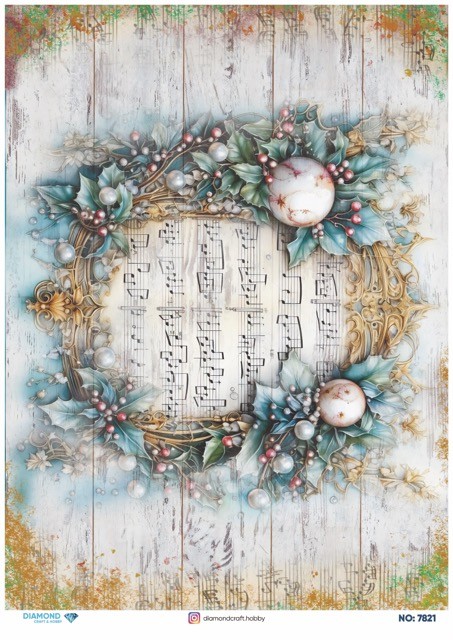 DIAMOND
CRAFT & HOBBY
diamondcraft.hobby
NO: 7821